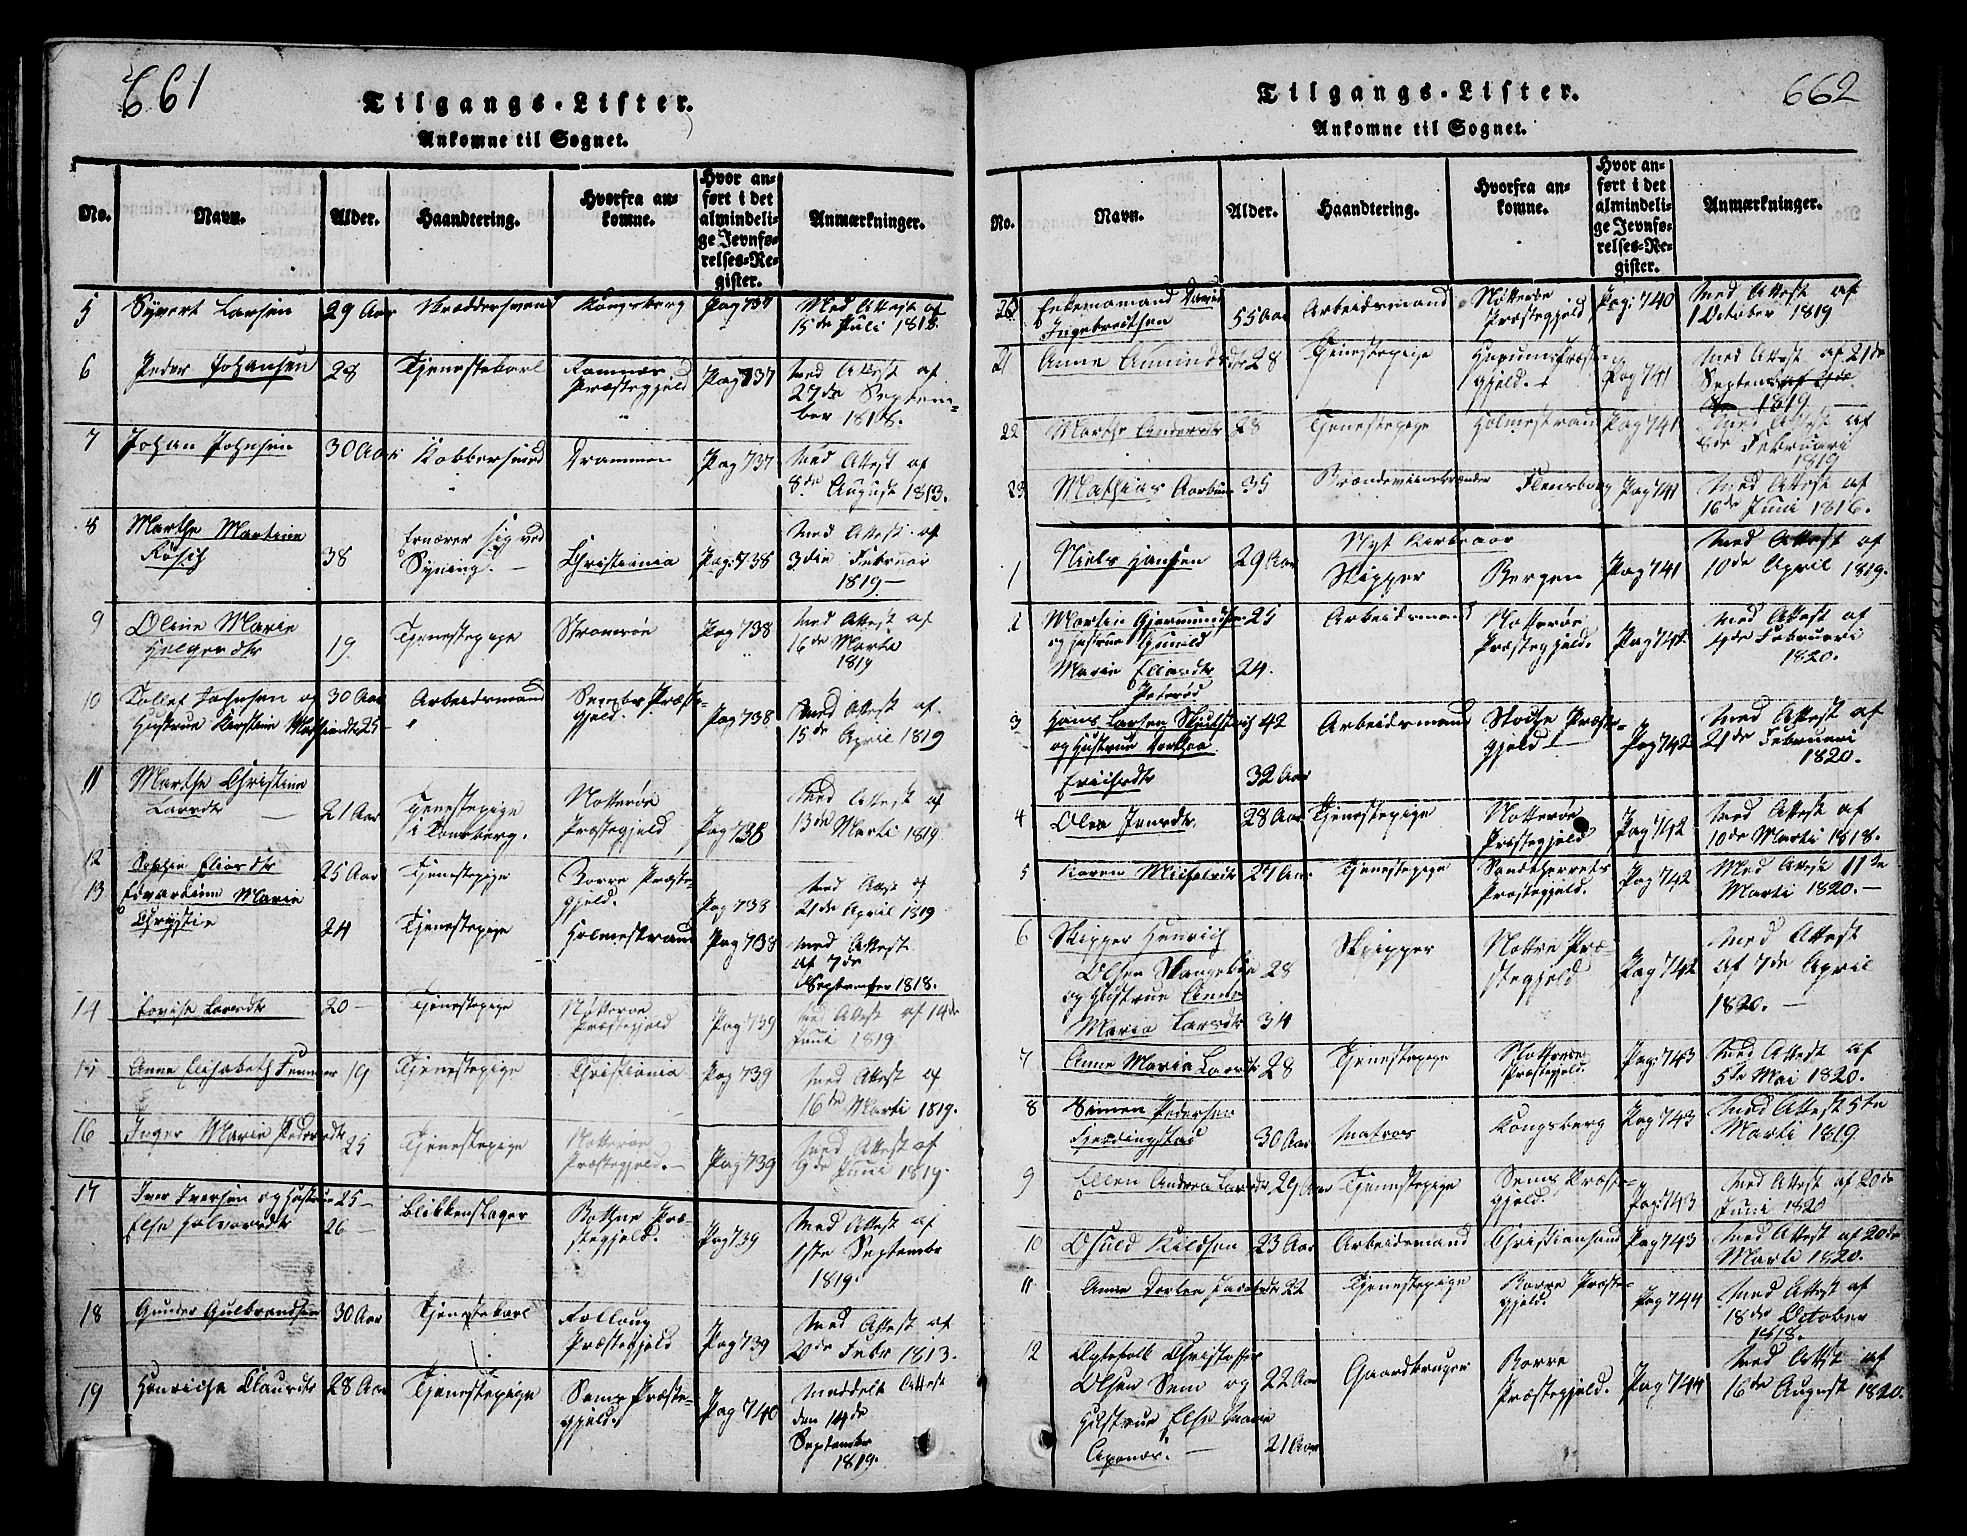 661
Tilgangs-Lister.
Ankomne til Sognet.
No. Navn. Alder. Haandtering. Hvorfra ankomne. Hvor anført i det almindelige Jevnførelses-Register. Anmærkninger.
5 Syvert Larsen 29 Aar Skreddersvend Kongsberg Pag 737 Med Attest af
15de Juli 1818.
6 Peder Johansen 28 Tjenestekarl Ramnæs Pag 737 Med Attest af
Præstegjeld 27de Septem-
ber 1818.
7 Johan Johnsen 30 Aar Kobbersmed Drammen Pag 737 Med Attest af
8de August 1813.
8 Marthe Martine Ernærer sig ved Med Attest af
38 Syning. Christiania Pag: 738 3die Februar
1819
9 Oline Marie Tjenestepige Stromsøe Pag 738 Med Attest af
Holgersdtr 19 16de Martii
1819
10 Tollef Johnsen og 30 Aar Arbeidsmand Sembs Præste- Med Attest af
Hustrue Kirstine Mathiasdtr 25 gjeld. Pag 738 15de April 1819
11 Marthe Christine Nøtterøe Med Attest af
Larsdtr 21 Aar Tjenestepige Præstegjeld Pag 738 13de Marti 1819.
i Tonsberg.
12 Sophie Eliasdtr 25 Aar Tjenestepige Borre Præste- Med Attest af
gjeld. Pag 738 21de April 1819
13 Edvardine Marie
Christie 24 Tjenestepige Holmestrand Pag 738 Med Attest
af 7de
September 1818.
14 Lovise Larsdtr 20 Tjenestepige Nøtterøe Pag 739 Med Attest af 14de
Præstegjeld Juni 1819
15 Anne Elisabeth 19 Tjenestepige Christiania Pag 739 Med Attest af
16de Marti 1819.
16 Inger Marie Pedersdtr 25 Tjenestepige Nøtterøe Med Attest af
Præstegjeld. Pag 739 9de Juni 1819.
17 Iver Iversen og Hustrue 25 Blikkenslager Botne Præ- Med Attest af
Else Halvorsdtr 26 stegjeld. Pag 739 1ste Septembr
1819.
18 Gunder Gulbrandsen 30 Aar Tjenestekarl Med Attest af
Præstegjeld Pag 739 20de Febr 1813.
19 Henriche Clausdtr 28 Aar Tjenestepige Sems Præste- Pag 740 Meddelt Attest
gjeld. den 14de
Septembr
1819.
662
Tilgangs-Lister.
Ankomne til Sognet.
No. Navn. Alder. Haandtering. Hvorfra ankomne. Hvor anført i det almindelige Jevnførelses-Register. Anmærkninger.
20 Enkemamand David 55 Aar Arbeidsmand Nøtterøe Pag: 740 Med Attest af
Ingebretsen Præstegjeld 1 October 1819
21 Anne Amundsdtr 28 Tjenestepige Præste- Med Attest af 21de
gjeld. Pag 741 Septem
1819
22 Marthe Andersdtr 28 Tjenestepige Holmestrand Pag 741 Med Attest af
8de Februari
1819
23 Mathias Aarbun 35 Brændeviinsbrænder Flensborg Pag 741 Med Attest af
16de Juni 1816.
Nyt Kirkeaar
1 Niels Hansen 29 Aar Skipper Bergen Pag 741 Med Attest af
10de April 1819.
2 Morten Gjermundsen 25 Arbeidsmand Nøtterøe Med Attest af
og Hustrue Gunild Præstegjeld. Pag 742 4de Februari
Marie Eliasdtr 24. 1820.
3 Hans Larsen 42 Arbeidsmand Stokke Præste- Med Attest af
og Hustrue Dorthea gjeld Pag 742 21de Februari
Erichsdtr 32 Aar 1820.
4 Olea Jensdtr 28 Aar Tjenestepige Nøtterøe Pag 742 Med Attest af
Præstegjeld 10de Marti 1818.
5 Karen Michelsdtr 27 Aar Tjenestepige Sandeherreds Pag 742 Med Attest 11te
Præstegjeld. Marti 1820.
6 Skipper Henrich Skipper Nøttrø Præ- Med Attest
Olsen 28 stegjeld Pag 742 af 7de April
og Hustrue Anne 1820.
Maria Larsdtr 34
7 Anne Maria Larsdtr 28 Tjenestepige Nøtterøe Pag: 743 Med Attest af
Præstegjeld. 5te Mai 1820.
8 Simen Pedersen Med Attest 5te
Fjerdingstad 30 Aar Matros Kongsberg Pag 743 Marti 1819
9 Ellen Andrea Larsdtr 29 Aar Tjenestepige Sems Præste- Med Attest af 20de
gjeld. Pag: 743 Juni 1820
10 Osuld Nilssen 23 Aar Arbeidsmand Christiansand Pag 743 Med Attest af 20de
Marti 1820.
11 Anne Dorthea Jacobsdtr 22 Tjenestepige Borre Præste- Med Attest af
gjeld. Pag 744 18de October
1818.
12 Ægtefolk Christoffer Borre Med Attest af
Olsen Sem og 22 Aar Gaardbruger Præstegjeld. Pag 744 16de August 1820.
Hustrue Else Marie
21 Aar